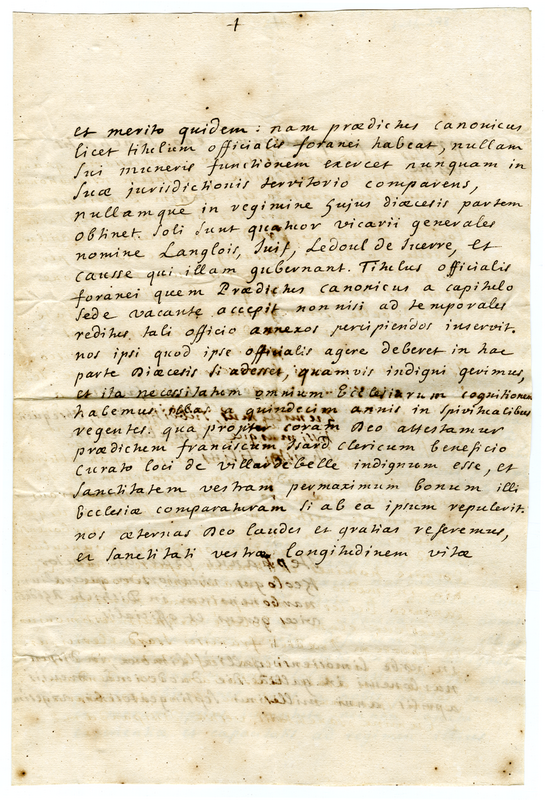 4
et merito quidem: nam prædictus canonicus
licet titulum officialis foranei habeat, nullam
sui muneris functionem exercet nunquam in
suæ jurisdictionis territorio comparens,
nullamque in regimine hujus diæcesis partem
obtinet. soli sunt quatuor vicarii generales
nomine Langlois, Juif, Ledoul de Sicerre, et
causse qui illam gubernant. Titulus officialis
foranei quem Prædictus canonicus a capitulo
sede vacante accepit non nisi ad temporales
reditus tali officio annexos percipiendos inservit.
nos ipsi quod ipse officialis agere deberet in hac
parte Diæcesis si adesset, quamvis indigni gerimus,
et ita necessitatum omnium Ecclesiarum cognitionem
habemus a quindecim annis in spiritualibus
regentes. qua propter coram Deo attestamur
prædictum franciscum Isard clericum beneficio
curato loci de villardebelle indignum esse, et
sanctitatem vestram permaximum bonum illi
Ecclesiæ comparaturam si ab ea ipsum repulerit.
nos æternas Deo laudes et gratias referemus,
et sanctitati vestræ longitudinem vitæ